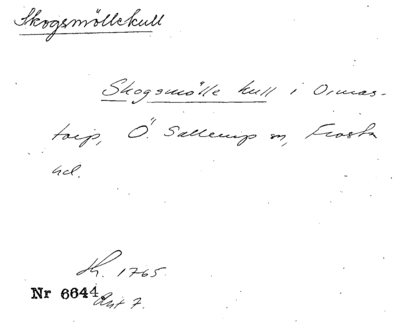 Skogsmöllekull
Skogsmölle kull i Ormas-
torp, Ö. Sallerup sn, Frosta
hd.
Sk. 1765
Nr 6644 Akt 7.